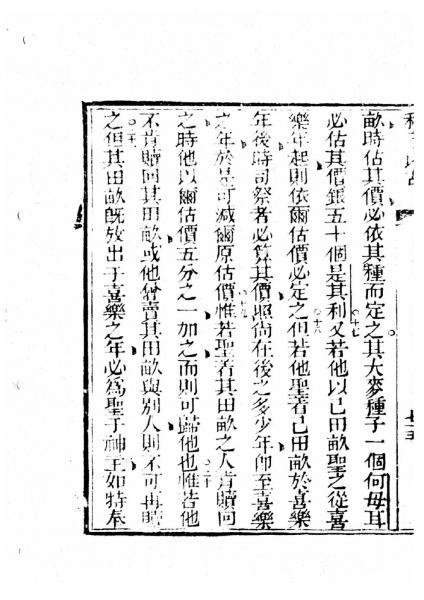 畝時估其價必依其種而定之其大麥種子一個何毋耳
必估其價銀五十個是其利十七又若他以己田畝聖之從喜
樂年起則依爾估價必定之十八但若他聖著己田畝於喜樂
年後時司祭者必算其價照尚在後之多少年即至喜樂
之年於是可減爾原估價十九惟若聖著其田畝之人肯贖回
之時他以爾估價五分之一加之而則可歸他也二十惟若他
不肯贖回其田畝或他曾賣其田畝與別人則不可再贖
之但其田畝旣放出于喜樂之年必為聖于神主如特奉